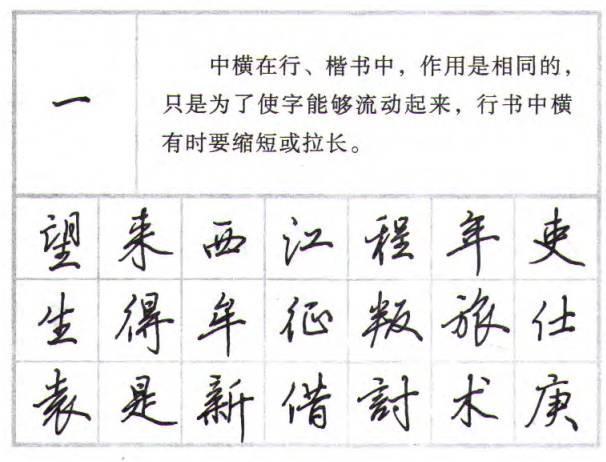 一
中横在行、楷书中，作用是相同的，
只是为了使字能够流动起来，行书中横
有时要缩短或拉长。
望来西江程年吏
生得牟征叛旅仕
袁是新借討术庚